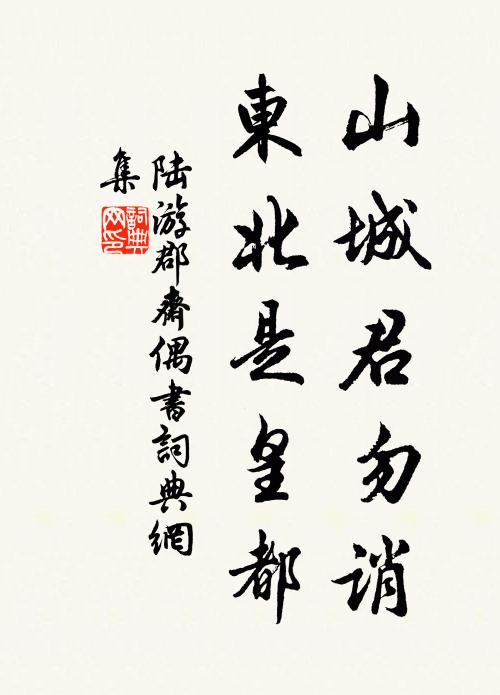 山城君勿誚
東北是皇都
陸游郡齋偶書詞典網
集
詞典網印